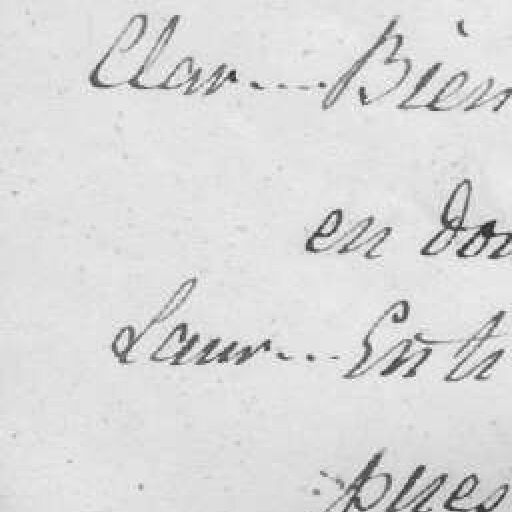 Clar....Bien
en don
Laur....En ti
pues